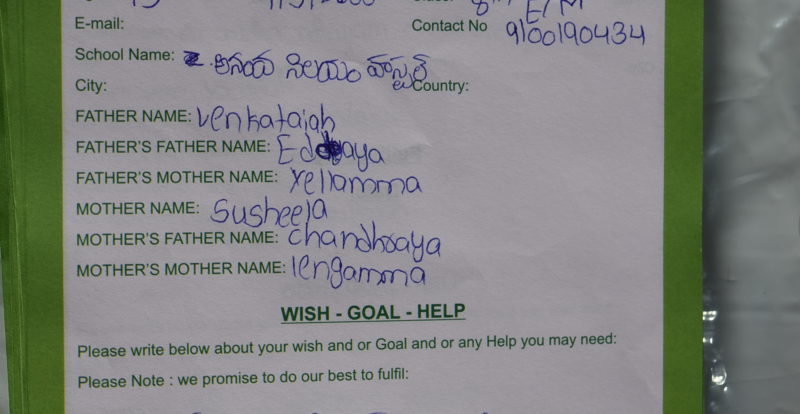 E-mail:
Contact No 9100190434
School Name: ఆనంద నిలయం హాస్టల్
City: Country:
FATHER NAME: Venkataiah
FATHER'S FATHER NAME:
FATHER'S MOTHER NAME: Yellamma
MOTHER NAME: Susheela
MOTHER'S FATHER NAME: Chandraaya
MOTHER'S MOTHER NAME: lengamma
WISH - GOAL - HELP
Please write below about your wish and or Goal and or any Help you may need:
Please Note : we promise to do our best to fulfil: